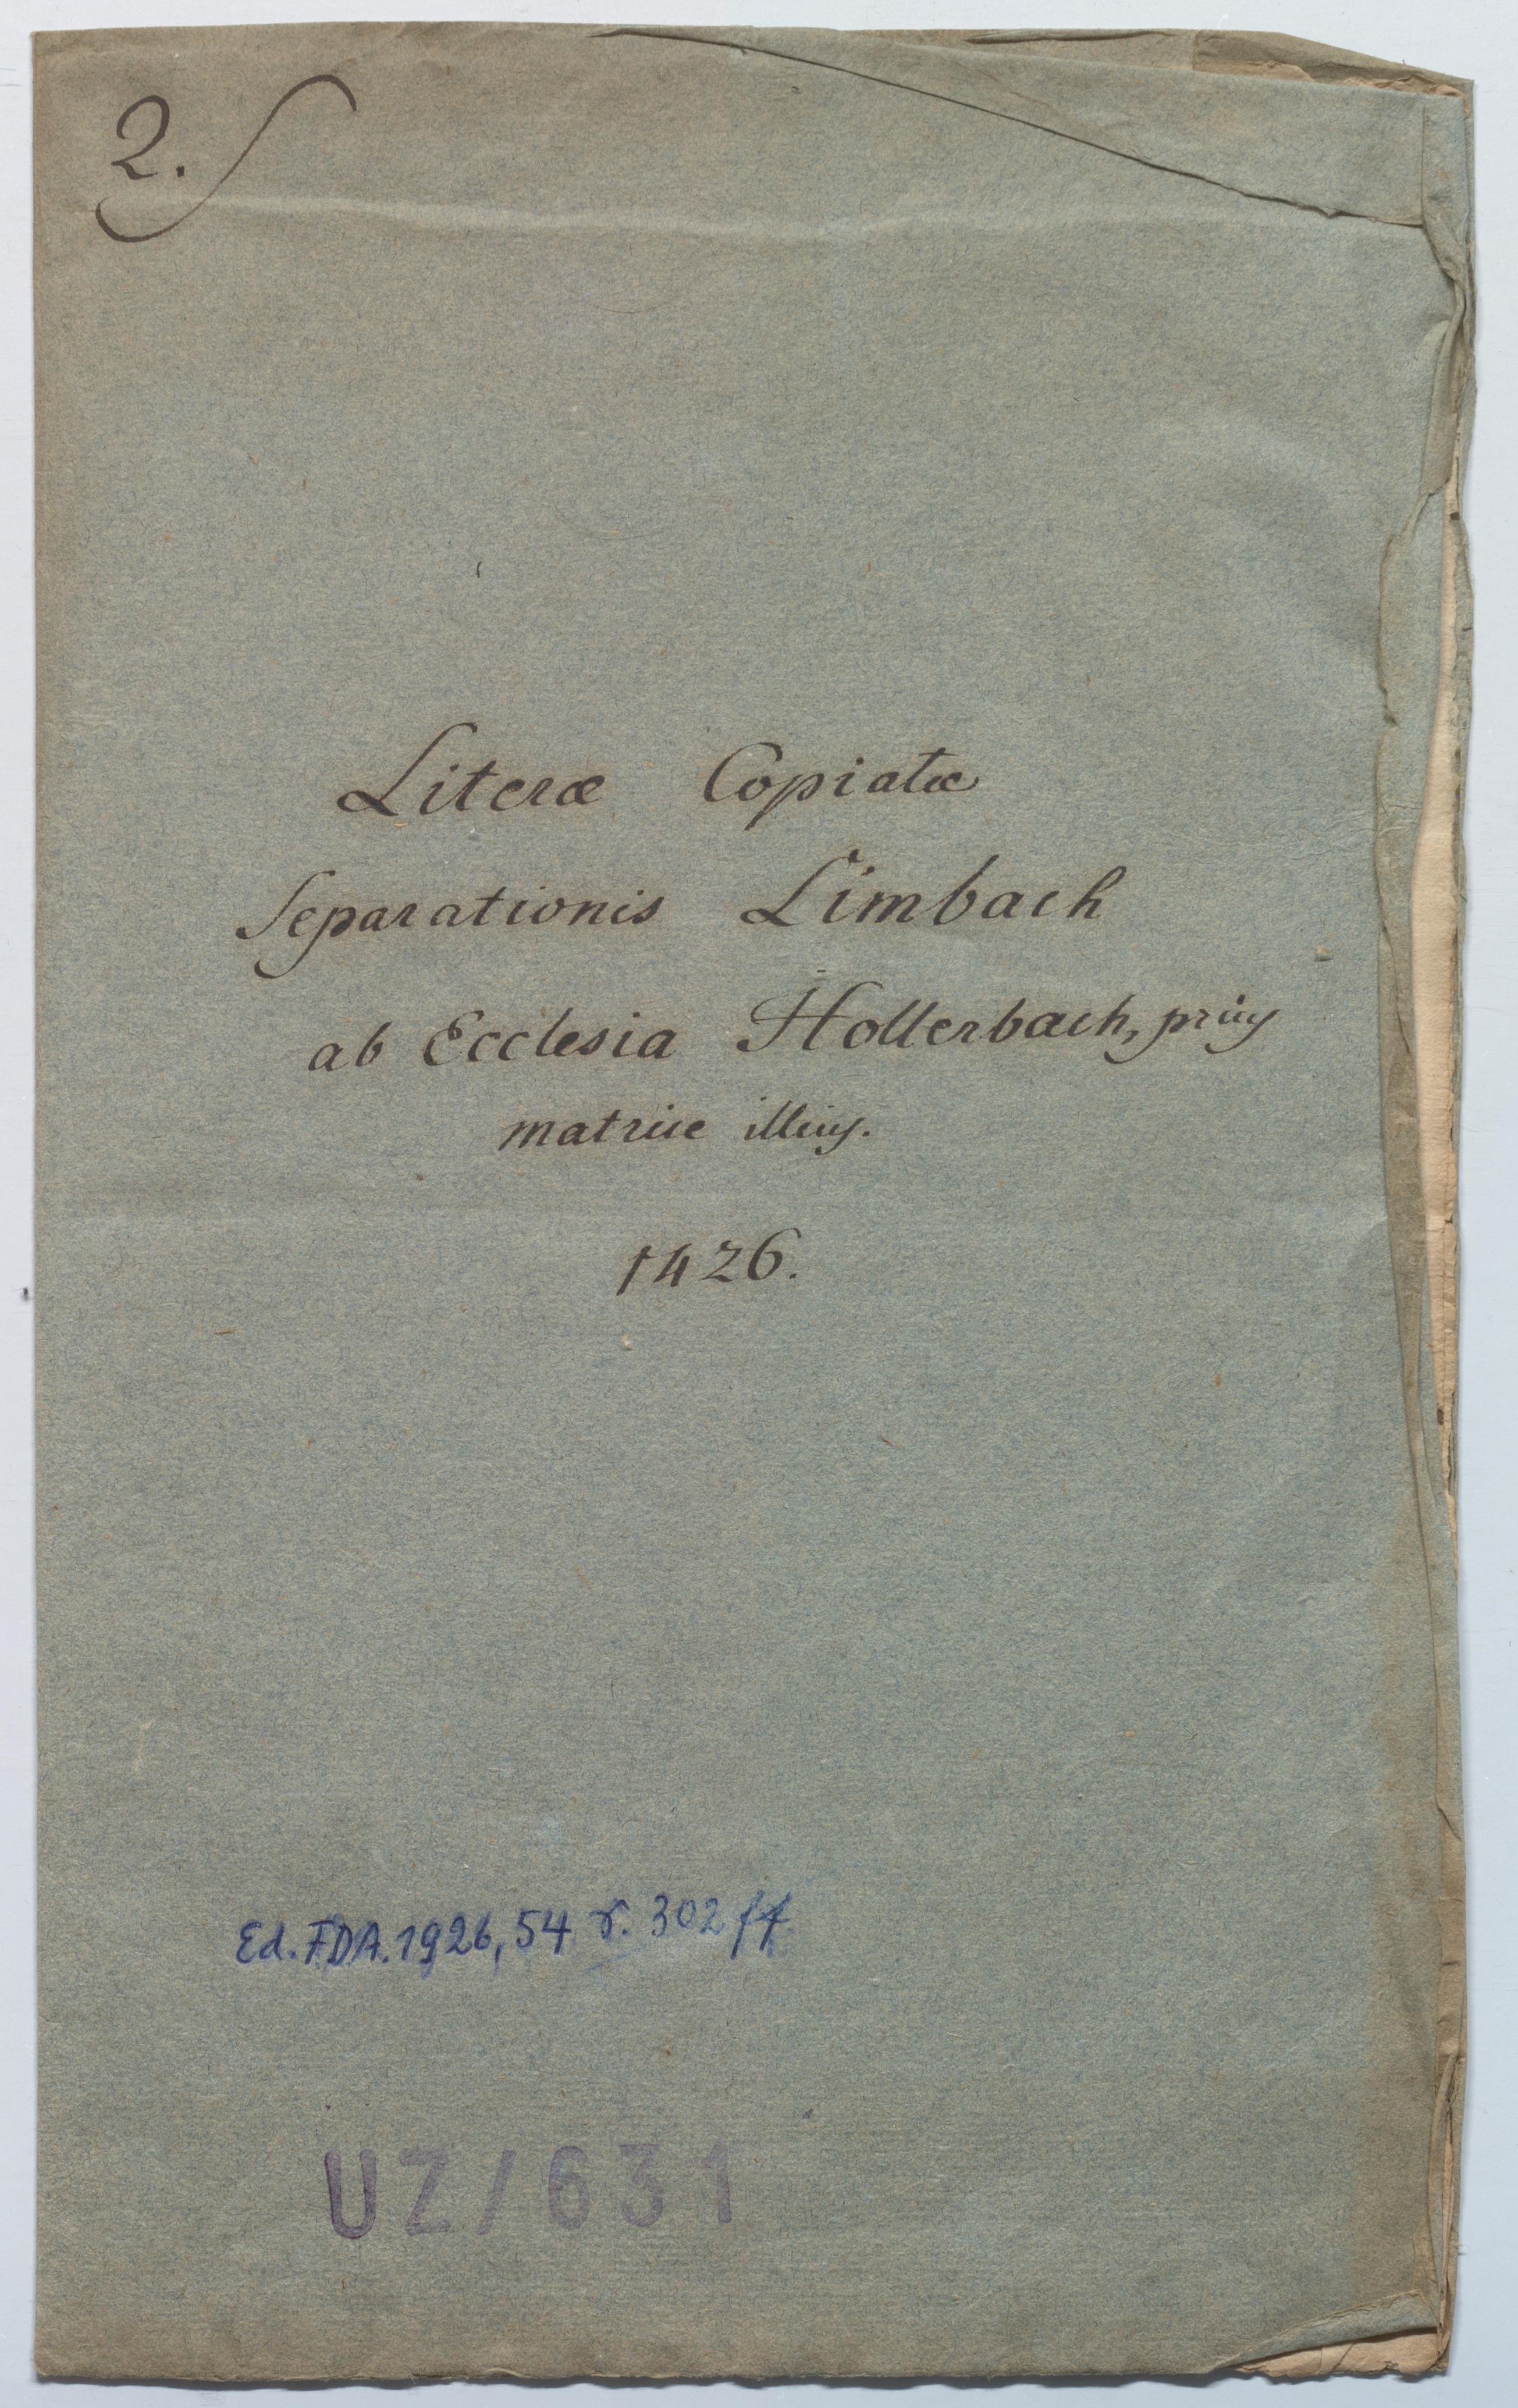 2.
Literæ Copiatæ
Separationis Limbach
ab Ecclesia Hollerbach, prius
matrice illius.
1426.
Ed. FDA. 1926, 54 S. 302 ff
UZ/631